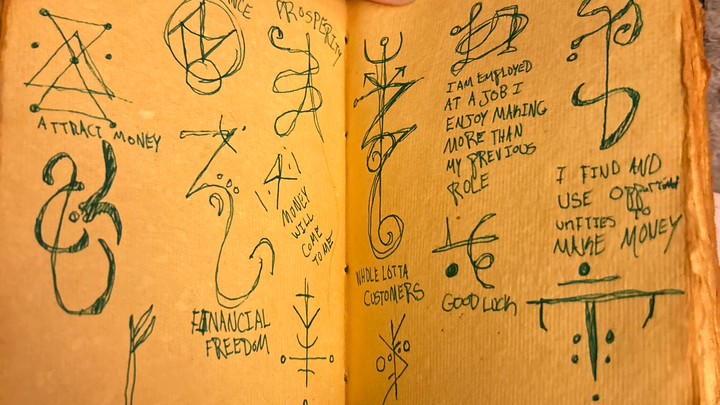 ATTRACT MONEY
PROSPERITY
MONEY
WILL
COME
TO ME
FINANCIAL
FREEDOM
WHOLE LOTTA
CUSTOMERS
I AM EMPLOYED
AT A JOB I
ENJOY MAKING
MORE THAN
MY PREVIOUS
ROLE
GOOD LUCK
I FIND AND
USE
TO
MAKE MONEY